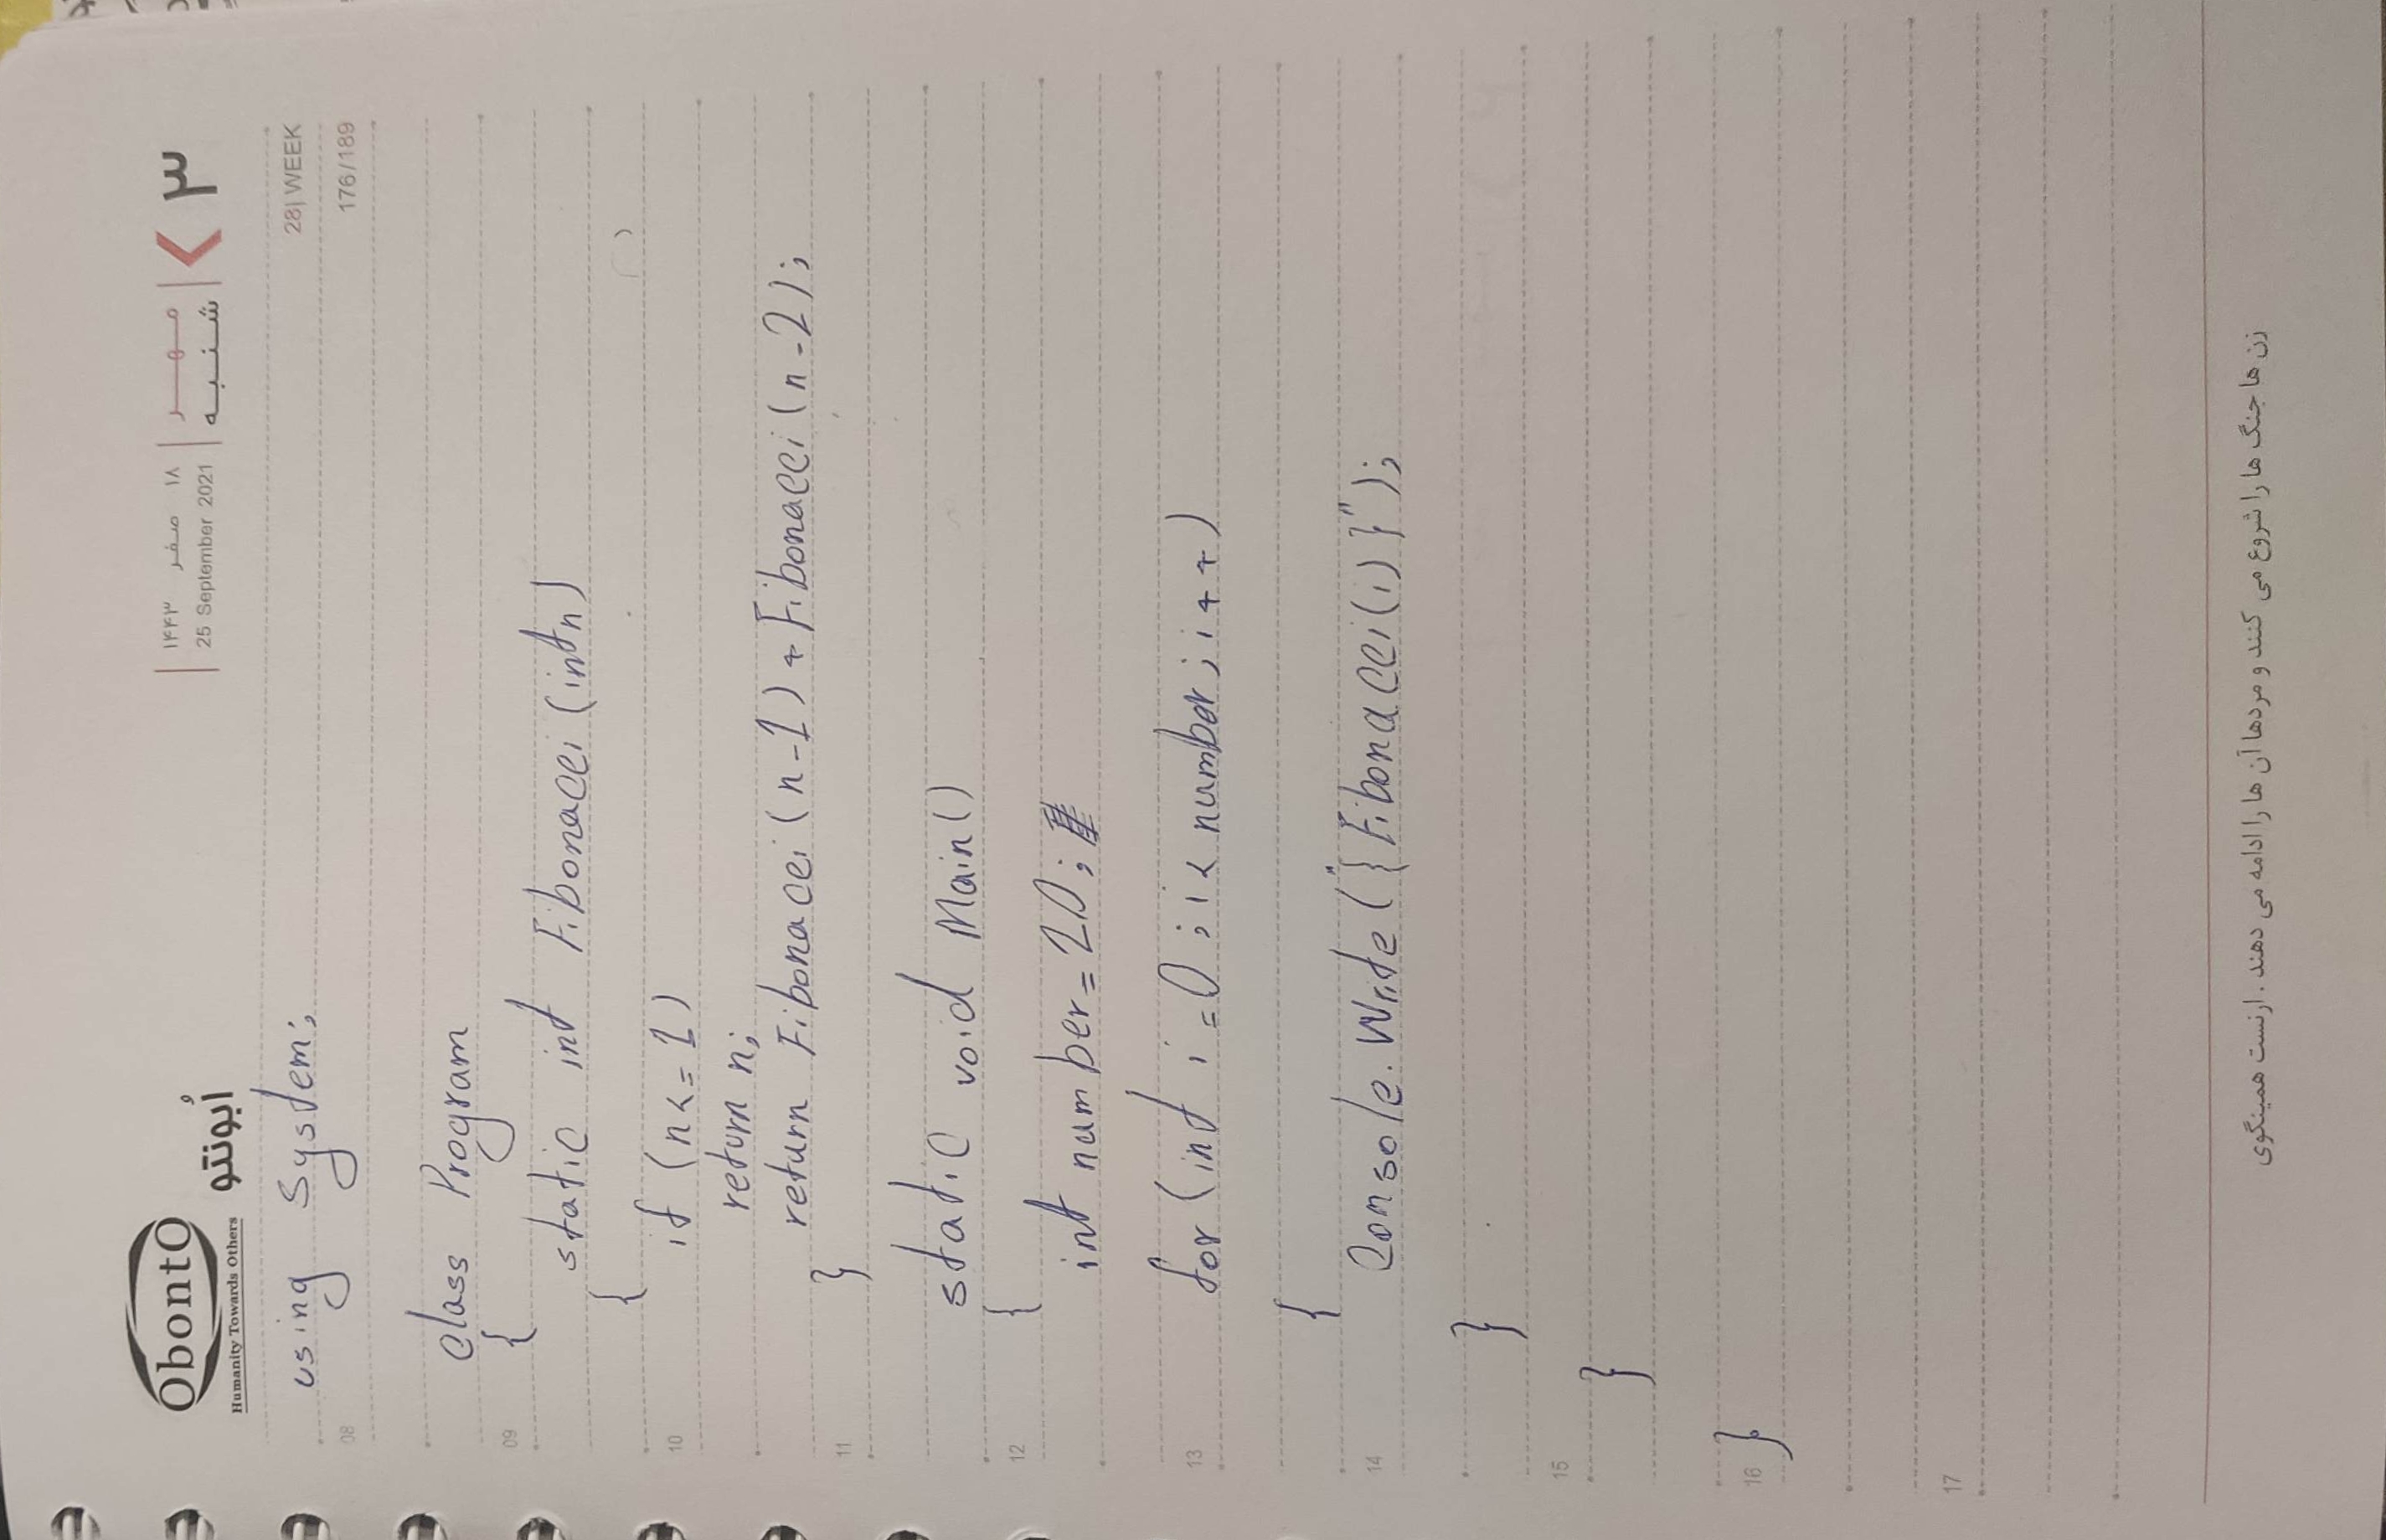 ObontO
Humanity Towards Others
أبونتو
۳
مهر
شنبه
۱۸ صفر ۱۴۴۳
25 September 2021
28| WEEK
176/189
using System;
08
class Program
09
{
static int Fibonacci (int n)
{
10
if (n <= 1)
return n;
return Fibonacci (n-1) + Fibonacci (n-2);
11
}
static void Main()
12
{
int number = 20;
13
for (int i = 0 ; i < number ; i ++)
{
14
Console.Write ("{Fibonacci(i)}");
}
15
}
16
}
17
زن ها جنگ ها را شروع می کنند و مردها آن ها را ادامه می دهند . ارنست همینگوی